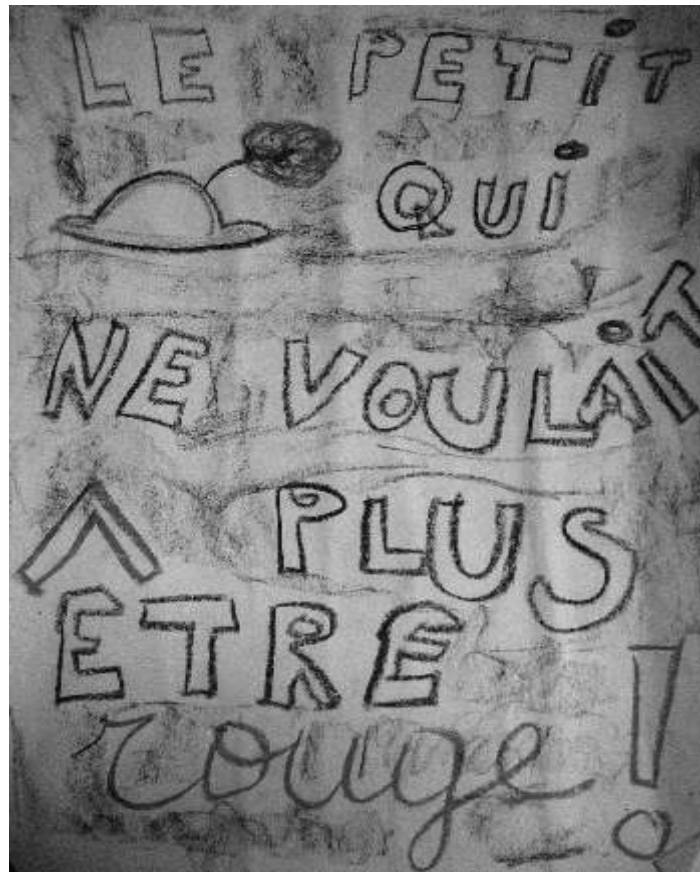 LE PETIT
QUI
NE VOULAIT
PLUS
ÊTRE
rouge!